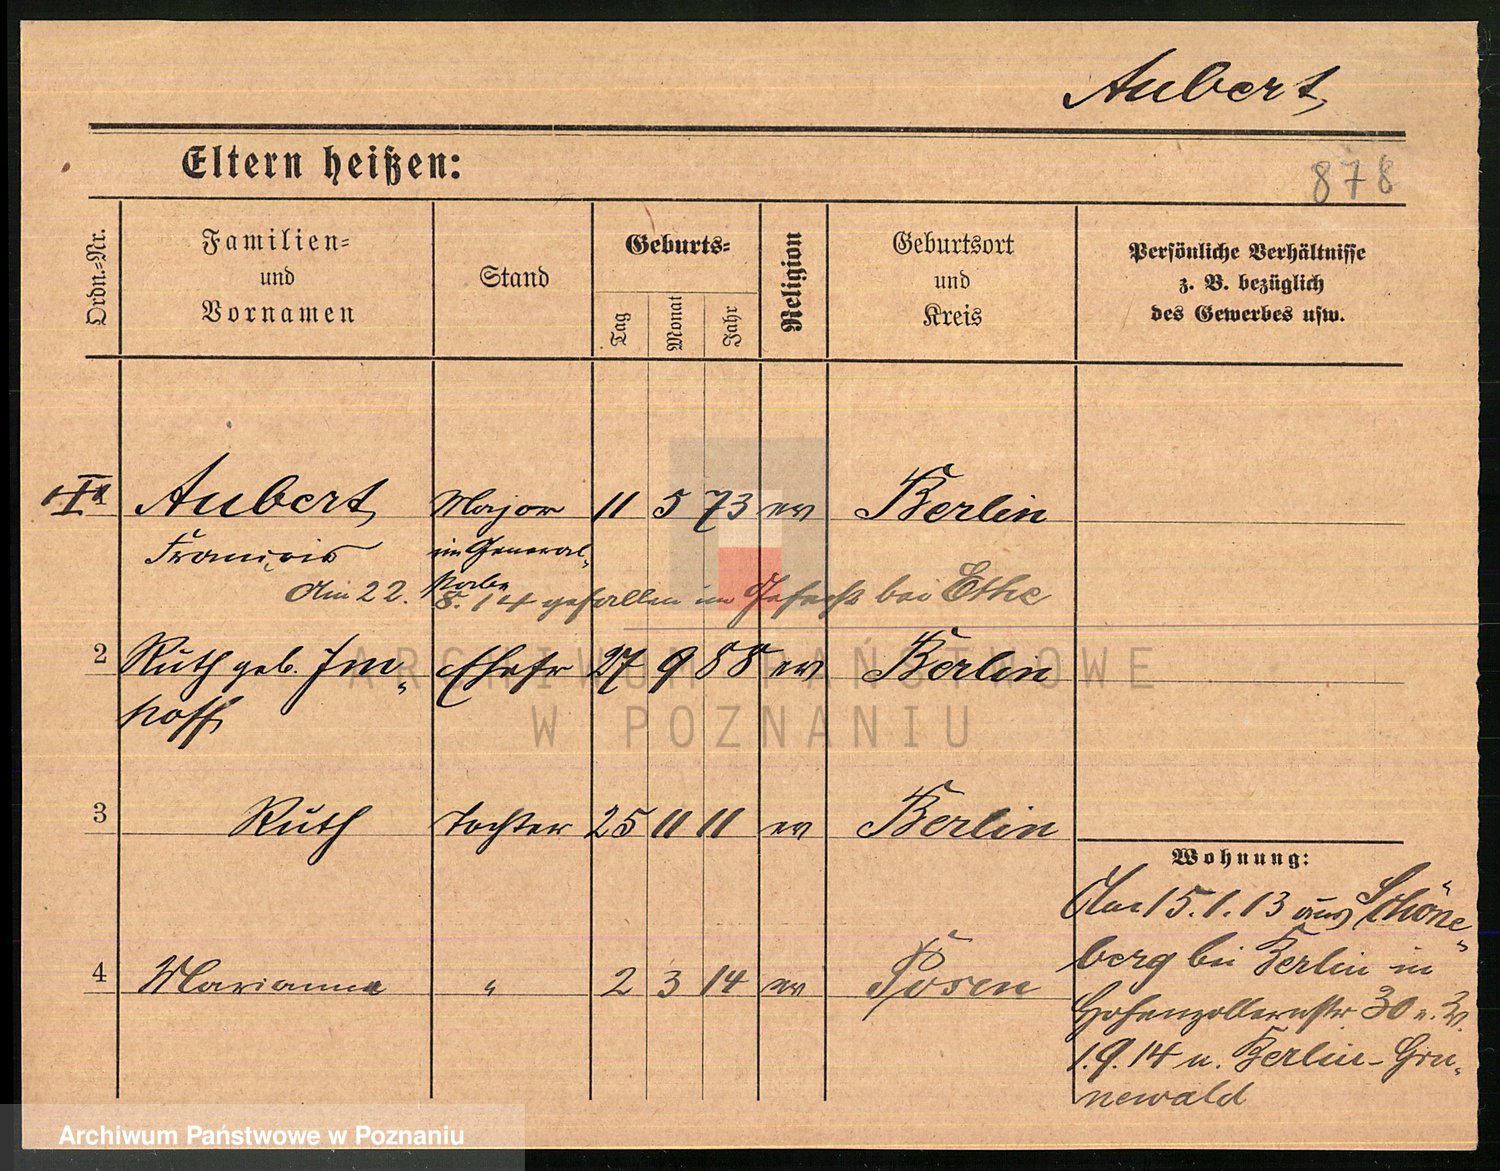 Aubert
Eltern heißen:
878
Ordn.=Nr.
Familien=
und
Vornamen
Stand
Geburts=
Tag
Monat
Jahr
Religion
Geburtsort
und
Kreis
Persönliche Verhältnisse
z. B. bezüglich
des Gewerbes usw.
1 Aubert Major 11 5 73 ev Berlin
François im General-
stabe
Am 22. 8. 14 gefallen im Gefecht bei Ethe
2 Ruth geb. Im- Ehefr 27 9 88 ev Berlin
hoff
3 Ruth Tochter 25 11 11 ev Berlin
Wohnung:
15.1.13 aus Schöne-
berg bei Berlin in
Hohenzollernstr 30
4 Marianne " 2 3 14 ev Posen
1.9.14 n. Berlin-Gru-
newald
ARCHIWUM PAŃSTWOWE
W POZNANIU
Archiwum Państwowe w Poznaniu